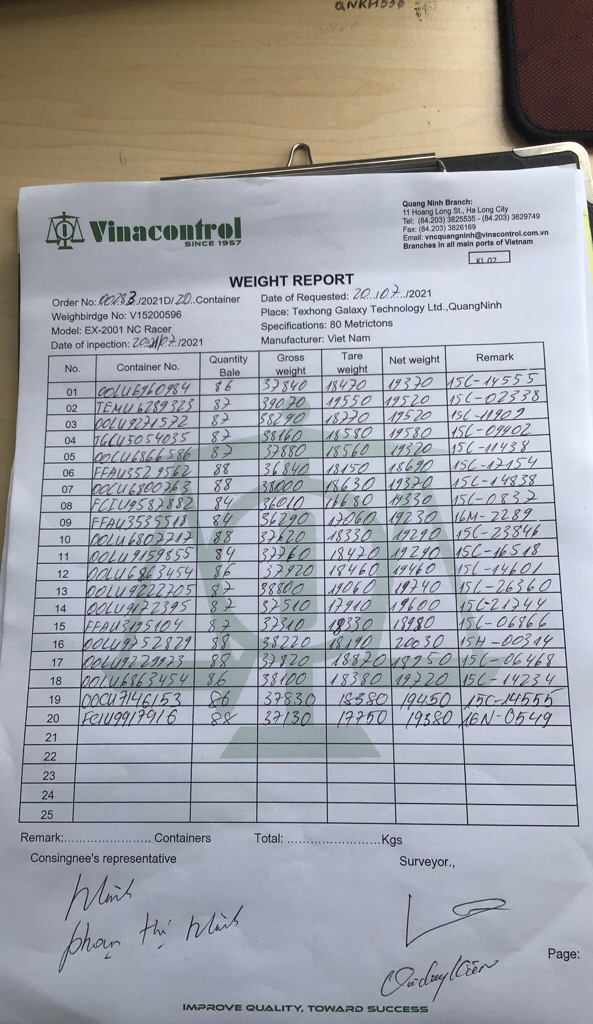 Vinacontrol
SINCE 1957
Quang Ninh Branch:
11 Hoang Long St., Ha Long City
Tel: (84.203) 3825535 - (84.203) 3629749
Fax: (84.203) 3826169
Email: vncquangninh@vinacontrol.com.vn
Branches in all main ports of Vietnam
KL 02
WEIGHT REPORT
Order No: 00283/2021D/20.Container
Date of Requested: 20../07../2021
Weighbirdge No: V15200596
Place: Texhong Galaxy Technology Ltd.,QuangNinh
Model: EX-2001 NC Racer
Specifications: 80 Metrictons
Date of inpection: /2021
Manufacturer: Viet Nam
No. Container No. Quantity Bale Gross weight Tare weight Net weight Remark
01 OOLU6960984 86 37840 18470 19370 15C-14555
02 TEMU6289323 87 39070 19550 19520 15C-02338
03 OOLU9271572 87 38290 18770 19520 15C-11909
04 TGCU5054035 87 38160 18580 19580 15C-09902
05 OOLU6866586 87 37880 18560 19320 15C-11438
06 FFAU3529562 88 36840 18150 18690 15C-17154
07 OOCU6800763 88 38000 18630 19370 15C-14838
08 FCIU9587882 84 36010 16680 19330 15C-0837
09 FFAU3535518 84 36290 17060 19230 16M-2289
10 OOLU6807217 88 37620 18330 19290 15C-23846
11 OOLU9159855 84 37760 18470 19290 15C-16518
12 OOLU6863454 86 37920 18460 19460 15C-14601
13 OOLU9222705 87 38800 19060 19740 15C-26360
14 OOLU9172395 87 37510 17910 19600 15C-21744
15 FFAU3195104 87 37310 18330 18980 15C-06866
16 OOLU9752829 88 38220 18190 20030 15H-00314
17 OOLU9229923 88 37820 18870 18950 15C-06468
18 OOLU6863454 86 38100 18380 19720 15C-14234
19 OOCU7146153 86 37830 18380 19450 15C-14555
20 FCIU9917916 88 37130 17750 19380 16N-0549
21
22
23
24
25
Remark:...................... Containers Total: ........................Kgs
Consingnee's representative
Surveyor.,
phạm thị
Page:
IMPROVE QUALITY, TOWARD SUCCESS